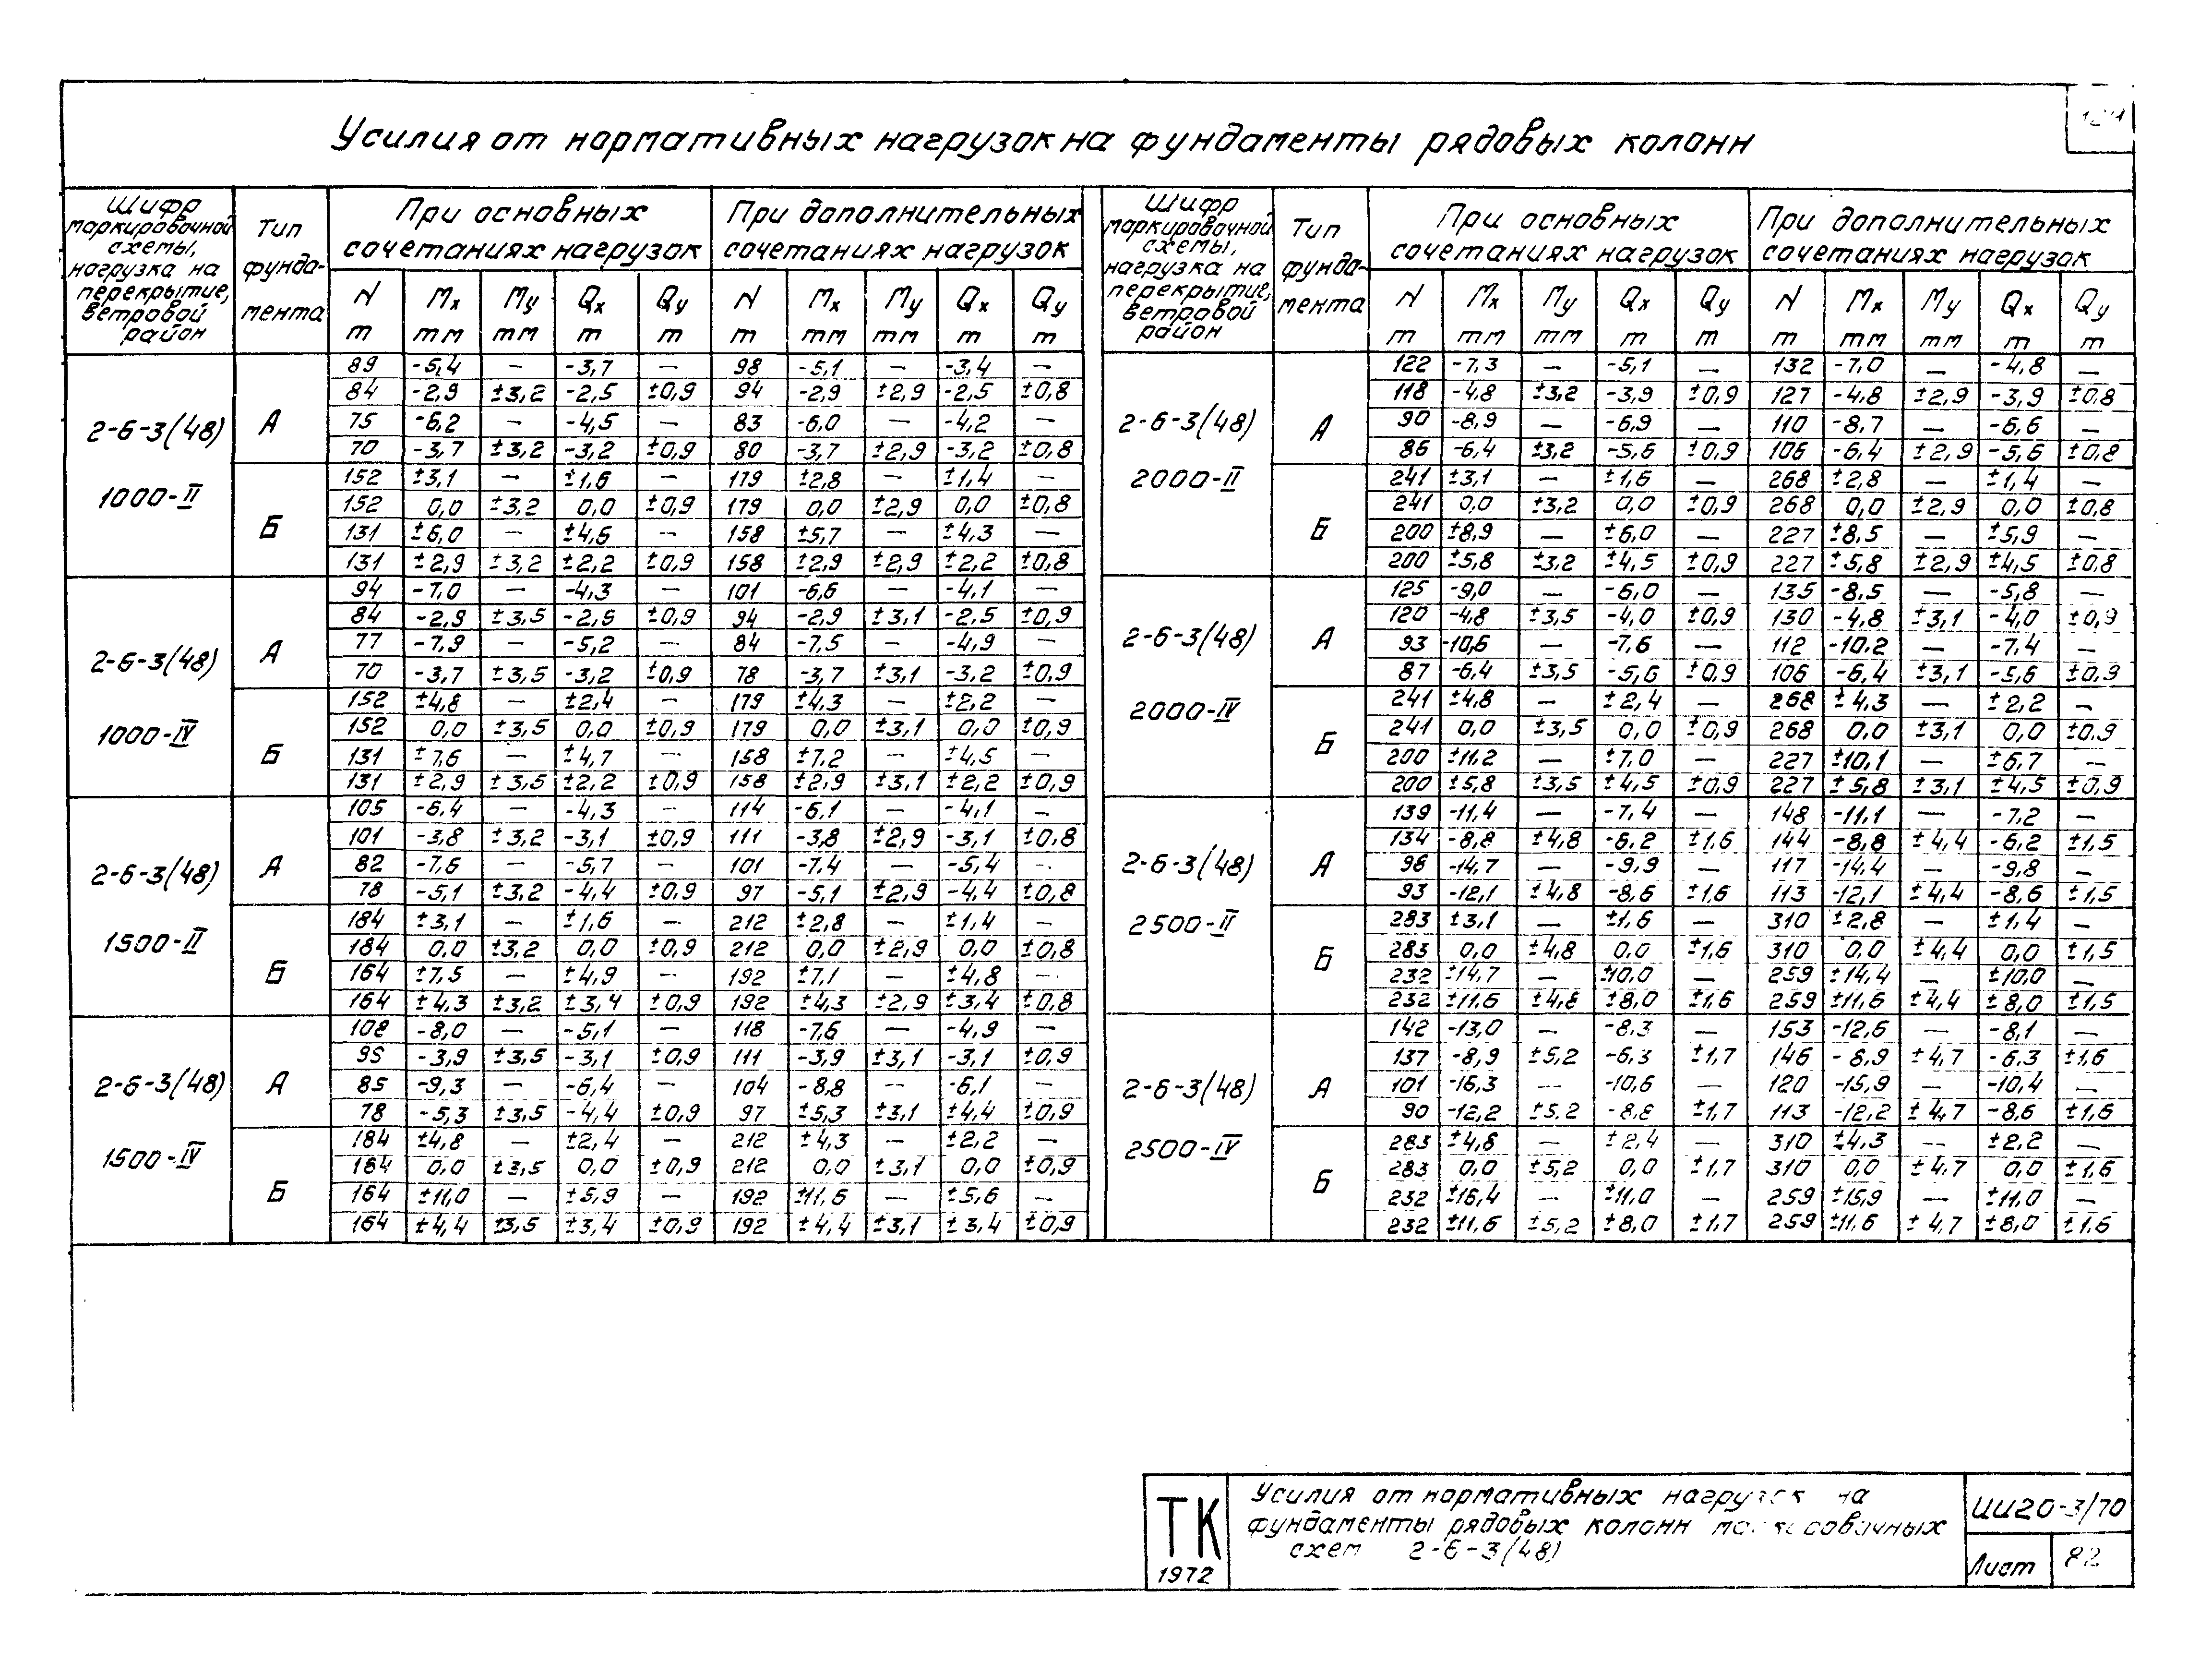 Усилия от нормативных нагрузок на фундаменты рядовых колонн
Шифр маркировочной схемы, нагрузка на перекрытие, ветровой район | Тип фундамента | При основных сочетаниях нагрузок | При дополнительных сочетаниях нагрузок
N т | Mx тм | My тм | Qx т | Qy т | N т | Mx тм | My тм | Qx т | Qy т
2-6-3(48) 1000-II
А
89 -5,4 — -3,7 — 98 -5,1 — -3,4 —
84 -2,9 ±3,2 -2,5 ±0,9 94 -2,9 ±2,9 -2,5 ±0,8
75 -6,2 — -4,5 — 83 -6,0 — -4,2 —
70 -3,7 ±3,2 -3,2 ±0,9 80 -3,7 ±2,9 -3,2 ±0,8
Б
152 ±3,1 — ±1,6 — 179 ±2,8 — ±1,4 —
152 0,0 ±3,2 0,0 ±0,9 179 0,0 ±2,9 0,0 ±0,8
131 ±6,0 — ±4,6 — 158 ±5,7 — ±4,3 —
131 ±2,9 ±3,2 ±2,2 ±0,9 158 ±2,9 ±2,9 ±2,2 ±0,8
2-6-3(48) 1000-IV
А
94 -7,0 — -4,3 — 101 -6,6 — -4,1 —
84 -2,9 ±3,5 -2,6 ±0,9 94 -2,9 ±3,1 -2,5 ±0,9
77 -7,9 — -5,2 — 84 -7,5 — -4,9 —
70 -3,7 ±3,5 -3,2 ±0,9 78 -3,7 ±3,1 -3,2 ±0,9
Б
152 ±4,8 — ±2,4 — 179 ±4,3 — ±2,2 —
152 0,0 ±3,5 0,0 ±0,9 179 0,0 ±3,1 0,0 ±0,9
131 ±7,6 — ±4,7 — 158 ±7,2 — ±4,5 —
131 ±2,9 ±3,5 ±2,2 ±0,9 158 ±2,9 ±3,1 ±2,2 ±0,9
2-6-3(48) 1500-II
А
105 -6,4 — -4,3 — 114 -6,1 — -4,1 —
101 -3,8 ±3,2 -3,1 ±0,9 111 -3,8 ±2,9 -3,1 ±0,8
82 -7,6 — -5,7 — 101 -7,4 — -5,4 —
78 -5,1 ±3,2 -4,4 ±0,9 97 -5,1 ±2,9 -4,4 ±0,8
Б
184 ±3,1 — ±1,6 — 212 ±2,8 — ±1,4 —
184 0,0 ±3,2 0,0 ±0,9 212 0,0 ±2,9 0,0 ±0,8
164 ±7,5 — ±4,9 — 192 ±7,1 — ±4,8 —
164 ±4,3 ±3,2 ±3,4 ±0,9 192 ±4,3 ±2,9 ±3,4 ±0,8
2-6-3(48) 1500-IV
А
108 -8,0 — -5,1 — 118 -7,6 — -4,9 —
95 -3,9 ±3,5 -3,1 ±0,9 111 -3,9 ±3,1 -3,1 ±0,9
85 -9,3 — -6,4 — 104 -8,8 — -6,1 —
78 -5,3 ±3,5 -4,4 ±0,9 97 ±5,3 ±3,1 ±4,4 ±0,9
Б
184 ±4,8 — ±2,4 — 212 ±4,3 — ±2,2 —
184 0,0 ±3,5 0,0 ±0,9 212 0,0 ±3,1 0,0 ±0,9
164 ±11,0 — ±5,9 — 192 ±11,6 — ±5,6 —
164 ±4,4 ±3,5 ±3,4 ±0,9 192 ±4,4 ±3,1 ±3,4 ±0,9
Шифр маркировочной схемы, нагрузка на перекрытие, ветровой район | Тип фундамента | При основных сочетаниях нагрузок | При дополнительных сочетаниях нагрузок
N т | Mx тм | My тм | Qx т | Qy т | N т | Mx тм | My тм | Qx т | Qy т
2-6-3(48) 2000-II
А
122 -7,3 — -5,1 — 132 -7,0 — -4,8 —
118 -4,8 ±3,2 -3,9 ±0,9 127 -4,8 ±2,9 -3,9 ±0,8
90 -8,9 — -6,9 — 110 -8,7 — -6,6 —
86 -6,4 ±3,2 -5,6 ±0,9 106 -6,4 ±2,9 -5,6 ±0,8
Б
241 ±3,1 — ±1,6 — 268 ±2,8 — ±1,4 —
241 0,0 ±3,2 0,0 ±0,9 268 0,0 ±2,9 0,0 ±0,8
200 ±8,9 — ±6,0 — 227 ±8,5 — ±5,9 —
200 ±5,8 ±3,2 ±4,5 ±0,9 227 ±5,8 ±2,9 ±4,5 ±0,8
2-6-3(48) 2000-IV
А
125 -9,0 — -6,0 — 135 -8,5 — -5,8 —
120 -4,8 ±3,5 -4,0 ±0,9 130 -4,8 ±3,1 -4,0 ±0,9
93 -10,6 — -7,6 — 112 -10,2 — -7,4 —
87 -6,4 ±3,5 -5,6 ±0,9 106 -6,4 ±3,1 -5,6 ±0,9
Б
241 ±4,8 — ±2,4 — 268 ±4,3 — ±2,2 —
241 0,0 ±3,5 0,0 ±0,9 268 0,0 ±3,1 0,0 ±0,9
200 ±11,2 — ±7,0 — 227 ±10,1 — ±6,7 —
200 ±5,8 ±3,5 ±4,5 ±0,9 227 ±5,8 ±3,1 ±4,5 ±0,9
2-6-3(48) 2500-II
А
139 -11,4 — -7,4 — 148 -11,1 — -7,2 —
134 -8,8 ±4,8 -6,2 ±1,6 144 -8,8 ±4,4 -6,2 ±1,5
96 -14,7 — -9,9 — 117 -14,4 — -9,8 —
93 -12,1 ±4,8 -8,6 ±1,6 113 -12,1 ±4,4 -8,6 ±1,5
Б
283 ±3,1 — ±1,6 — 310 ±2,8 — ±1,4 —
283 0,0 ±4,8 0,0 ±1,6 310 0,0 ±4,4 0,0 ±1,5
232 ±14,7 — ±10,0 — 259 ±14,4 — ±10,0 —
232 ±11,6 ±4,8 ±8,0 ±1,6 259 ±11,6 ±4,4 ±8,0 ±1,5
2-6-3(48) 2500-IV
А
142 -13,0 — -8,3 — 153 -12,6 — -8,1 —
137 -8,9 ±5,2 -6,3 ±1,7 146 -8,9 ±4,7 -6,3 ±1,6
101 -16,3 — -10,6 — 120 -15,9 — -10,4 —
90 -12,2 ±5,2 -8,8 ±1,7 113 -12,2 ±4,7 -8,6 ±1,6
Б
283 ±4,8 — ±2,4 — 310 ±4,3 — ±2,2 —
283 0,0 ±5,2 0,0 ±1,7 310 0,0 ±4,7 0,0 ±1,6
232 ±16,4 — ±11,0 — 259 ±15,9 — ±11,0 —
232 ±11,6 ±5,2 ±8,0 ±1,7 259 ±11,6 ±4,7 ±8,0 ±1,6
ТК
1972
Усилия от нормативных нагрузок на
фундаменты рядовых колонн маркировочных
схем 2-6-3(48)
ИИ20-3/70
Лист 82